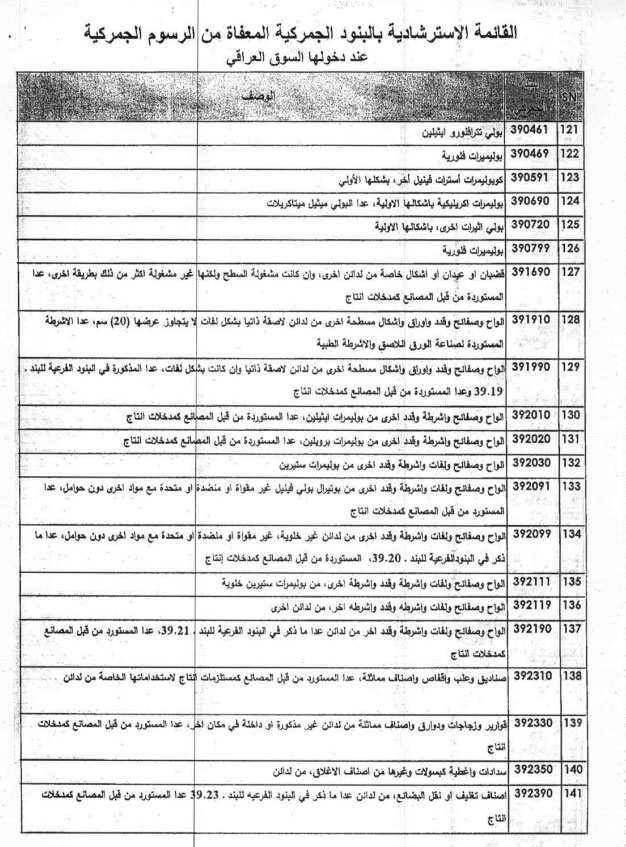 القائمة الاسترشادية بالبنود الجمركية المعفاة من الرسوم الجمركية
عند دخولها السوق العراقي
SN الوصف
121 390461 بولي تترافلورو ايثيلين
122 390469 بوليميرات فلورية
123 390591 كوبوليمرات أسترات فينيل أخر، بشكلها الأولي
124 390690 بوليمرات اكريليكية باشكالها الاولية، عدا البولي ميثيل ميتاكريلات
125 390720 بولي اثيرات اخرى، باشكالها الاولية
126 390799 بوليميرات فلورية
127 391690 قضبان او عيدان او اشكال خاصة من لدائن اخرى، وإن كانت مشغولة السطح ولكنها غير مشغولة اكثر من ذلك بطريقة اخرى، عدا
المستوردة من قبل المصانع كمدخلات انتاج
128 391910 الواح وصفائح وقدد واوراق واشكال مسطحة اخرى من لدائن لاصقة ذاتيا بشكل لفات لا يتجاوز عرضها (20) سم، عدا الاشرطة
المستوردة لصناعة الورق اللاصق والاشرطة الطبية
129 391990 الواح وصفائح وقدد وإوراق وإشكال مسطحة اخرى من لدائن لاصقة ذاتيا وإن كانت بشكل لفات، عدا المذكورة في البنود الفرعية للبند .
39.19 وعدا المستوردة من قبل المصانع كمدخلات انتاج
130 392010 الواح وصفائح وإشرطة وقدد اخرى من بوليمرات ايثيلين، عدا المستوردة من قبل المصانع كمدخلات انتاج
131 392020 الواح وصفائح وإشرطة وقدد اخرى من بوليمرات بروبلين، عدا المستوردة من قبل المصانع كمدخلات انتاج
132 392030 الواح وصفائح ولفات وإشرطة وقدد اخرى من بوليمرات ستيرين
133 392091 الواح وصفائح ولفات وإشرطة وقدد اخرى من بوتيرال بولي فينيل غير مقواة او منضدة او متحدة مع مواد اخرى دون حوامل، عدا
المستورد من قبل المصانع كمدخلات انتاج
134 392099 الواح وصفائح ولفات وإشرطة وقدد اخرى من لدائن غير خلوية، غير مقواة او منضدة او متحدة مع مواد اخرى دون حوامل، عدا ما
ذكر في البنودالفرعية للبند . 39.20، المستوردة من قبل المصانع كمدخلات إنتاج
135 392111 الواح وصفائح ولفات وإشرطة وقدد وإشرطة اخرى، من بوليمرات ستيرين خلوية
136 392119 الواح وصفائح ولفات وإشرطه وقدد وإشرطه اخر، من لدائن اخرى
137 392190 الواح وصفائح ولفات وإشرطة وقدد اخر من لدائن عدا ما ذكر في البنود الفرعية للبند . 39.21، عدا المستورد من قبل المصانع
كمدخلات انتاج
138 392310 صناديق وعلب واقفاص واصناف مماثلة، عدا المستورد من قبل المصانع كمستلزمات انتاج لاستخداماتها الخاصة من لدائن
139 392330 قوارير وزجاجات ودوارق واصناف مماثلة من لدائن غير مذكورة او داخلة في مكان اخر، عدا المستورد من قبل المصانع كمدخلات
انتاج
140 392350 سدادات وإغطية كبسولات وغيرها من اصناف الاغلاق، من لدائن
141 392390 اصناف تغليف او نقل البضائع، من لدائن عدا ما ذكر في البنود الفرعيه للبند . 39.23 عدا المستورد من قبل المصانع كمدخلات
انتاج